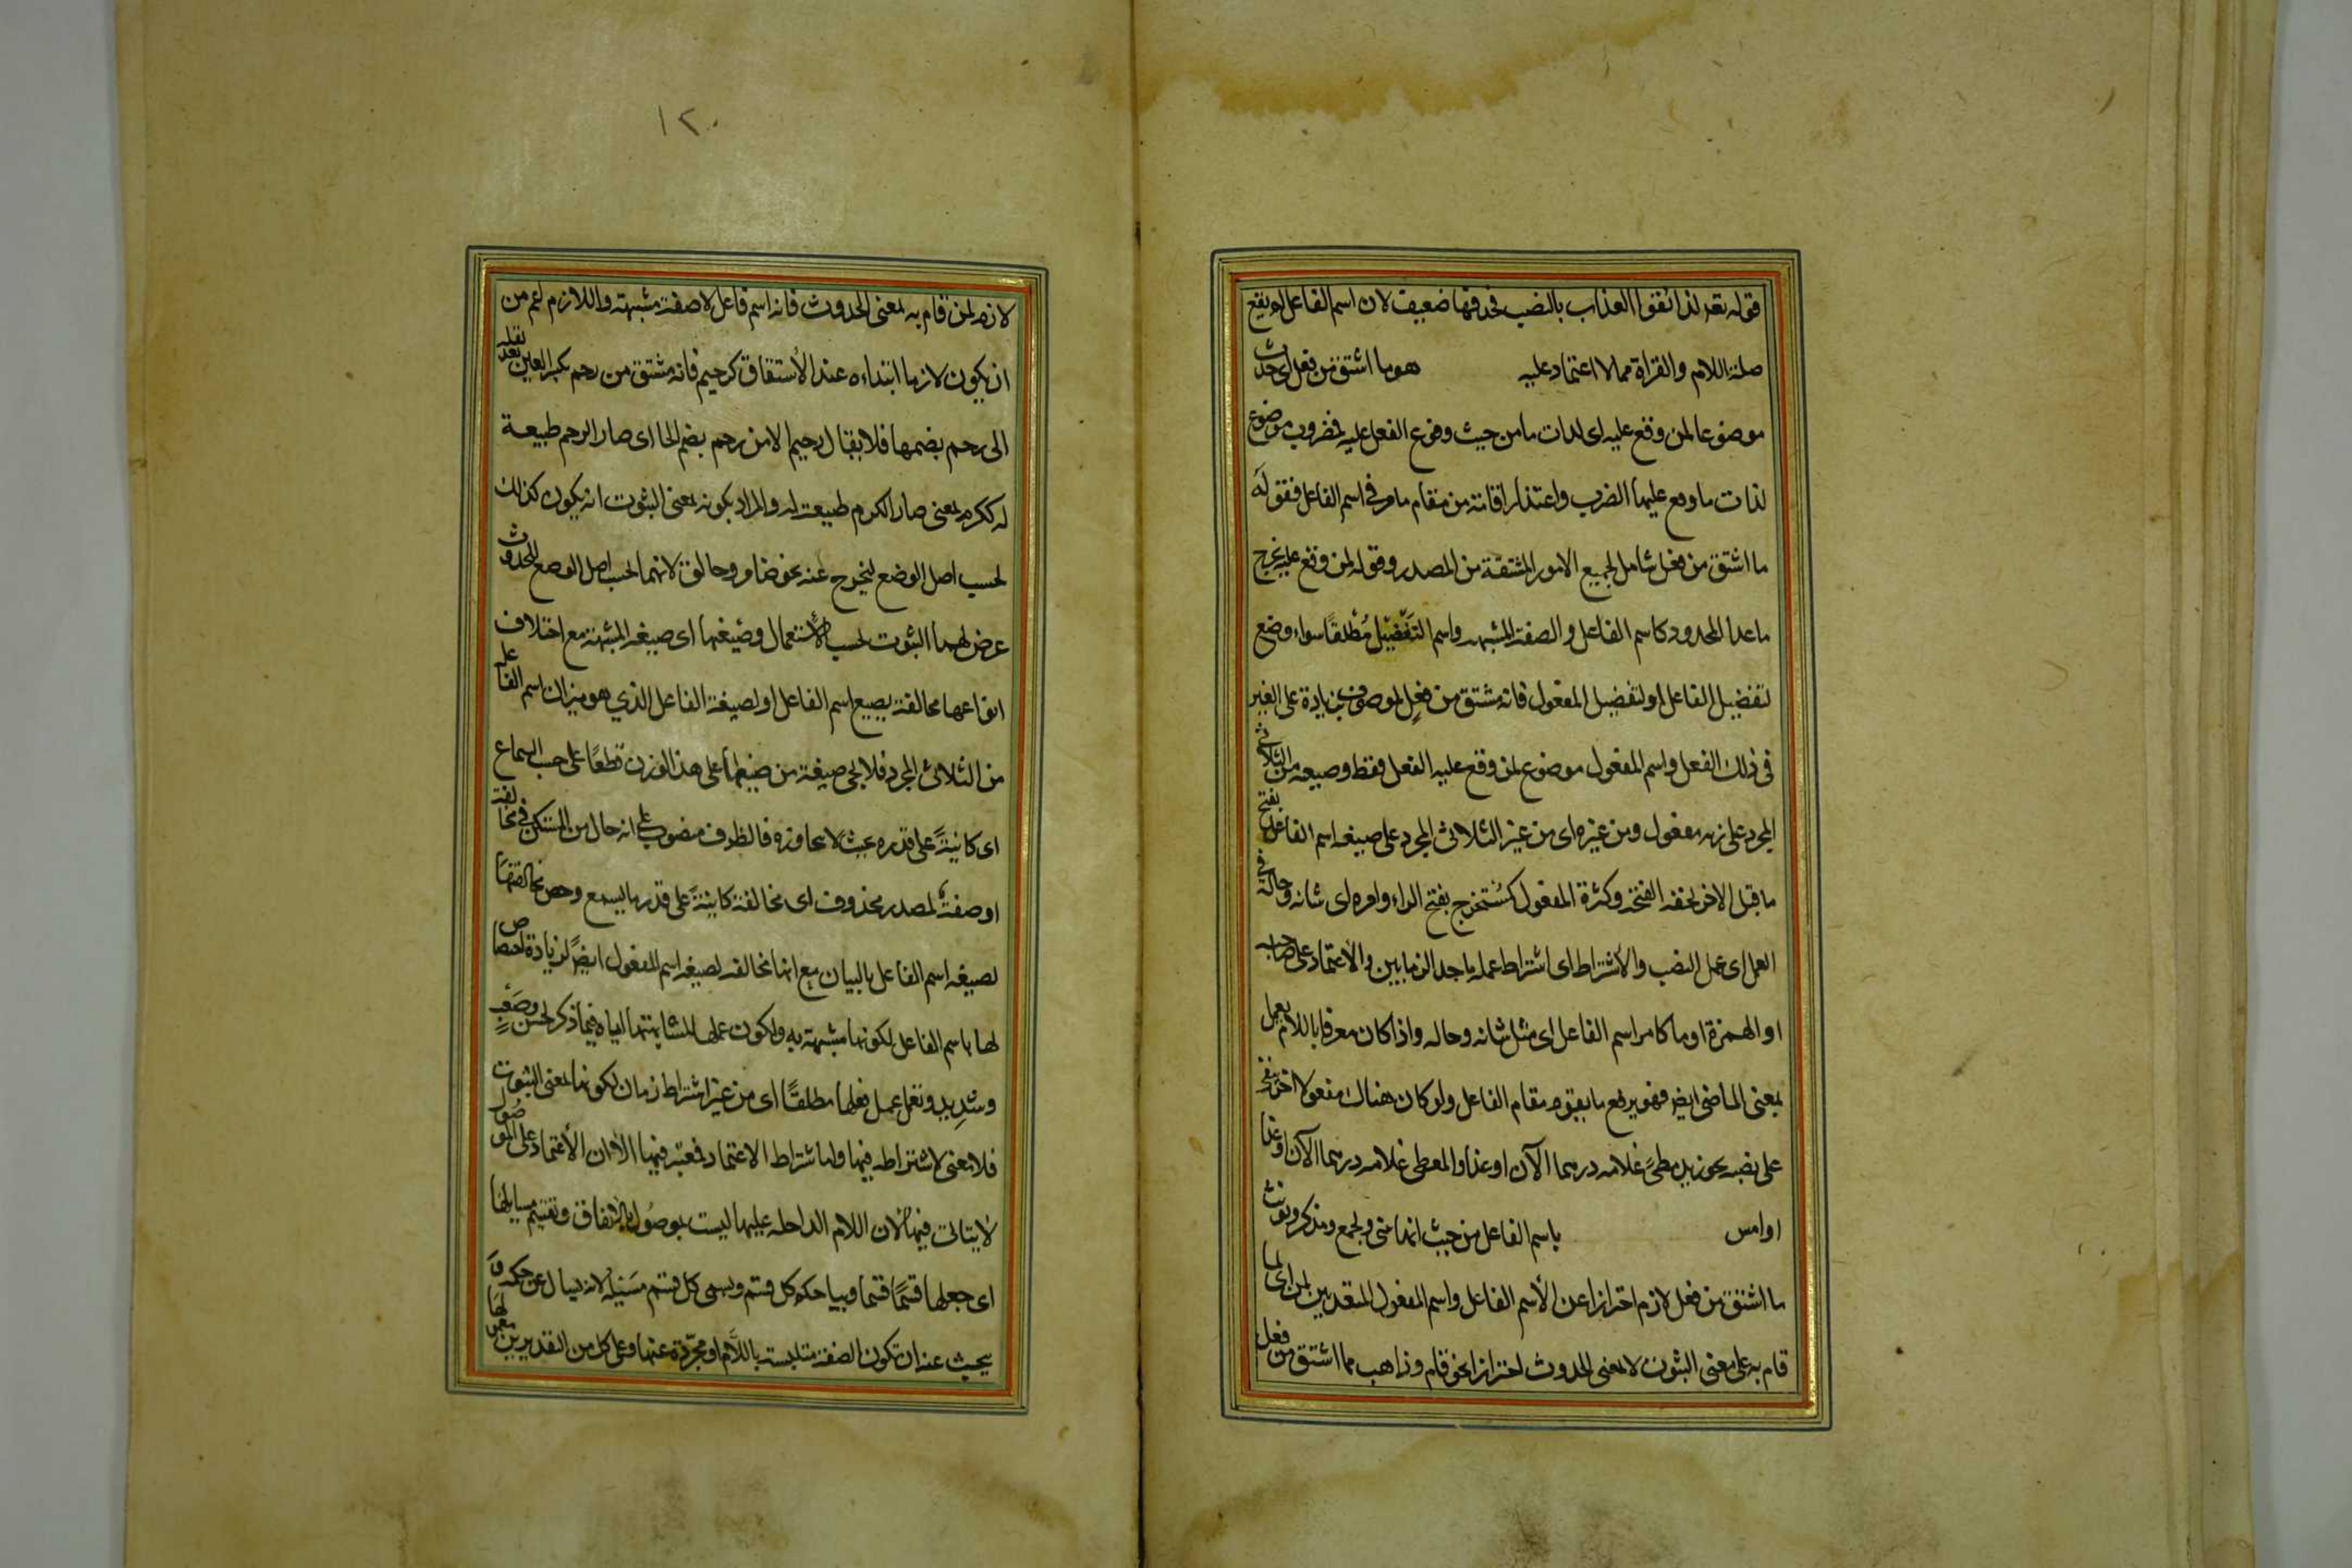 قوله تعه لذائقوا العذاب بالنصب فحذفها ضعيف لان اسم الفاعل لم يقع
صلة اللام والقراة مما لا اعتماد عليه هو ما اشتق من فعل اى حدث
موضوعا لمن وقع عليه اى لذات ما من حيث وقوع الفعل عليه فمضروب موضوع
لذات ما وقع عليها الضرب واعتذار اقامة من مقام ما مر فى اسم الفاعل فقوله
ما اشتق من فعل شامل لجميع الامور المشتقة من المصدر وقوله لمن وقع عليه يخرج
ما عدا المحدود كاسم الفاعل والصفة المشبهه واسم التفضيل مطلقا سواء وضع
لتفضيل الفاعل او لتفضيل المفعول فانه مشتق من فعل لموصوف بزيادة على الغير
فى ذلك الفعل واسم المفعول موضوع لمن وقع عليه الفعل فقط وصيغه من الثلاثى
المجرد على زنه مفعول ومن غيره اى من غير الثلاثى المجرد على صيغه اسم الفاعل بفتح
ما قبل الاخر لخفة الفتحه وكثرة المفعول كمستخرج بفتح الراء وامره اى شانه وحاله فى
العمل اى عمل النصب والاشتراط اى اشتراط عمله باحد الزمانين والاعتماد على صاحبه
او الهمزة او ما كامر اسم الفاعل اى مثل شانه وحاله واذا كان معرفا باللام يعمل
بمعنى الماضى ايضا فهو يرفع ما يقوم مقام الفاعل ولو كان هناك مفعول اخر يبقى
على نصبه نحو زيد معطى غلامه درهما الآن او غدا والمعطى غلامه درهما الآن او غدا
او امس باسم الفاعل من حيث انها تثنى وتجمع وتذكر وتونث
ما اشتق من فعل لازم احترازا عن الأسم الفاعل واسم المفعول المتعديين لمن اى لما
قام به على معنى الثبوت لا بمعنى الحدوث احترازا عن نحو قام وذاهب مما اشتق من فعل
١٢٠
لازم لمن قام به بمعنى الحدوث فانه اسم فاعل لا صفة مشبهته واللازم اعم من
ان يكون لازما ابتداء ه عند الأشتقاق كرحيم فانه مشتق من رحم بكسر العين بعد نقله
الى رحم بضمها فلا يقال رحيم الا من رحم بضم الحا اى صار الرحم طبيعة
له ككرم بمعنى صار الكرم طبيعة له والمراد بكونه بمعنى الثبوت انه يكون كذلك
بحسب اصل الوضع ليخرج عنه نحو ضامر وطالق لانهما بحسب اصل الوضع للحدوث
عرض لهما الثبوت بحسب الأستعمال وصيغها اى صيغه المشبهة مع اختلاف
انواعها مخالفة لصيغ اسم الفاعل او لصيغة الفاعل الذي هو ميزان اسم الفاعل
من الثلاثى المجرد فلا يجى صيغة من صيغها على هذا الوزن قطعا على حسب السماع
اى كاينة على قدره بحيث لا يتجاوزه فالظرف منصوب على انه حال من المستكن فى مخالفة
او صفة لمصدر محذوف اى مخالفة كاينة على قدر ما يسمع وخص مخالفتها
لصيغه اسم الفاعل بالبيان مع انها مخالفه لصيغه اسم المفعول ايضا لزيادة اختصاص
لها باسم الفاعل لكونها مشبهته به ولكون عملها لمشابهتها اياه فيما ذكر كحسن وصعب
وشديد وتعمل عمل فعلها مطلقا اى من غير اشتراط زمان لكونها بمعنى الثبوت
فلا معنى لاشتراطه فيها واما اشتراط الاعتماد فمعتبر فيها الا ان الأعتماد على الموصول
لا يتاتى فيها لان اللام الداخله عليها ليست بموصول بالاتفاق وتقسيم مسايلها
اى جعلها قسما قسما وبيان حكم كل قسم ويسمى كل قسم مسئلة لانه يسال عن حكمه
يبحث عنه ان تكون الصفة متلبسته باللام او مجردة عنها وعلى كل من التقديرين معمولها